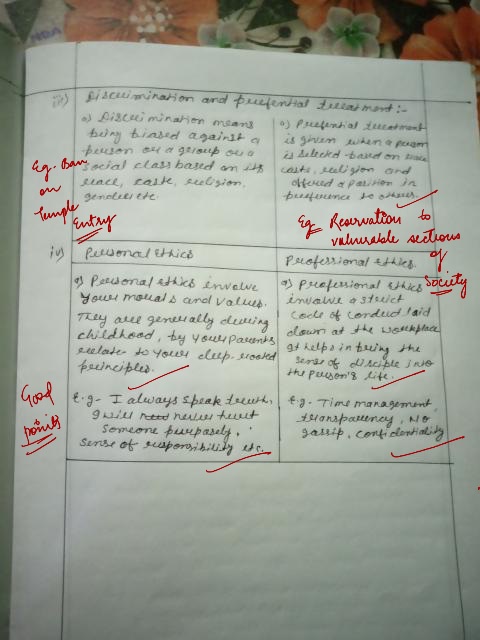 iii) Discrimination and prefential treatment:-
a) Discrimination means
being biased against a
person or a group or a
social class based on its
race, caste, religion,
gender etc.
a) Prefential treatment
is given when a person
is selected based on race
caste, religion and
offered a position in
preference to others.
Eg. Ban
on
Temple
Entry
Eg. Reservation to
vulnerable sections
of
society
iv) Personal Ethics
Professional Ethics.
a) Personal Ethics involve
your morals and values.
They are generally during
childhood, by your parents
relate to your deep rooted
principles.
a) Professional Ethics
involve a strict
code of conduct laid
down at the workplace
It helps in bring the
sense of disciple into
the person's life.
Good
points
E.g- I always speak truth,
I will never hurt
someone purpasely,
sense of responsibility etc.
E.g- Time management,
transparency, No
gossip, confidentiality